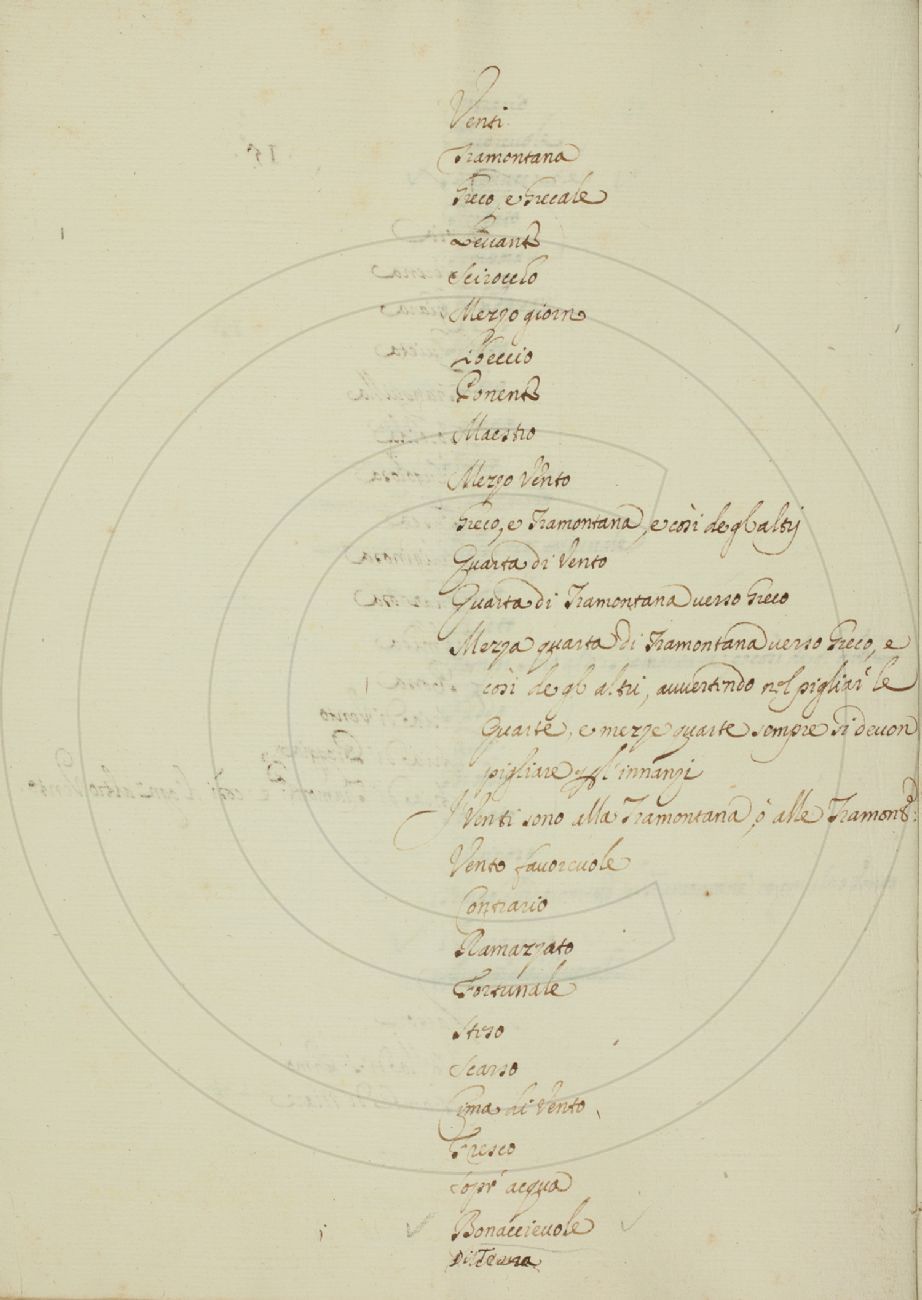 Venti
Tramontana
Greco, e Grecale
Levante
Scirocco
Mezzo giorno
Libeccio
Ponente
Maestro
Mezzo Vento
Greco, e Tramontana, e così degl'altrj
Quarta di Vento
Quarta di Tramontana verso Greco
Mezza quarta di Tramontana verso Greco, e
così degl'altri, avvertendo nel pigliar' le
Quarte, e mezze quarte sempre si devon
pigliare l'innanzi
J Venti sono alla Tramontana, ò alle Tramont:
Vento favorevole
Contrario
Ramazzato
Fortunale
Steso
Scarso
Cima di Vento
Fresco
Sopr'acqua
Bonaccievole
Di Terra